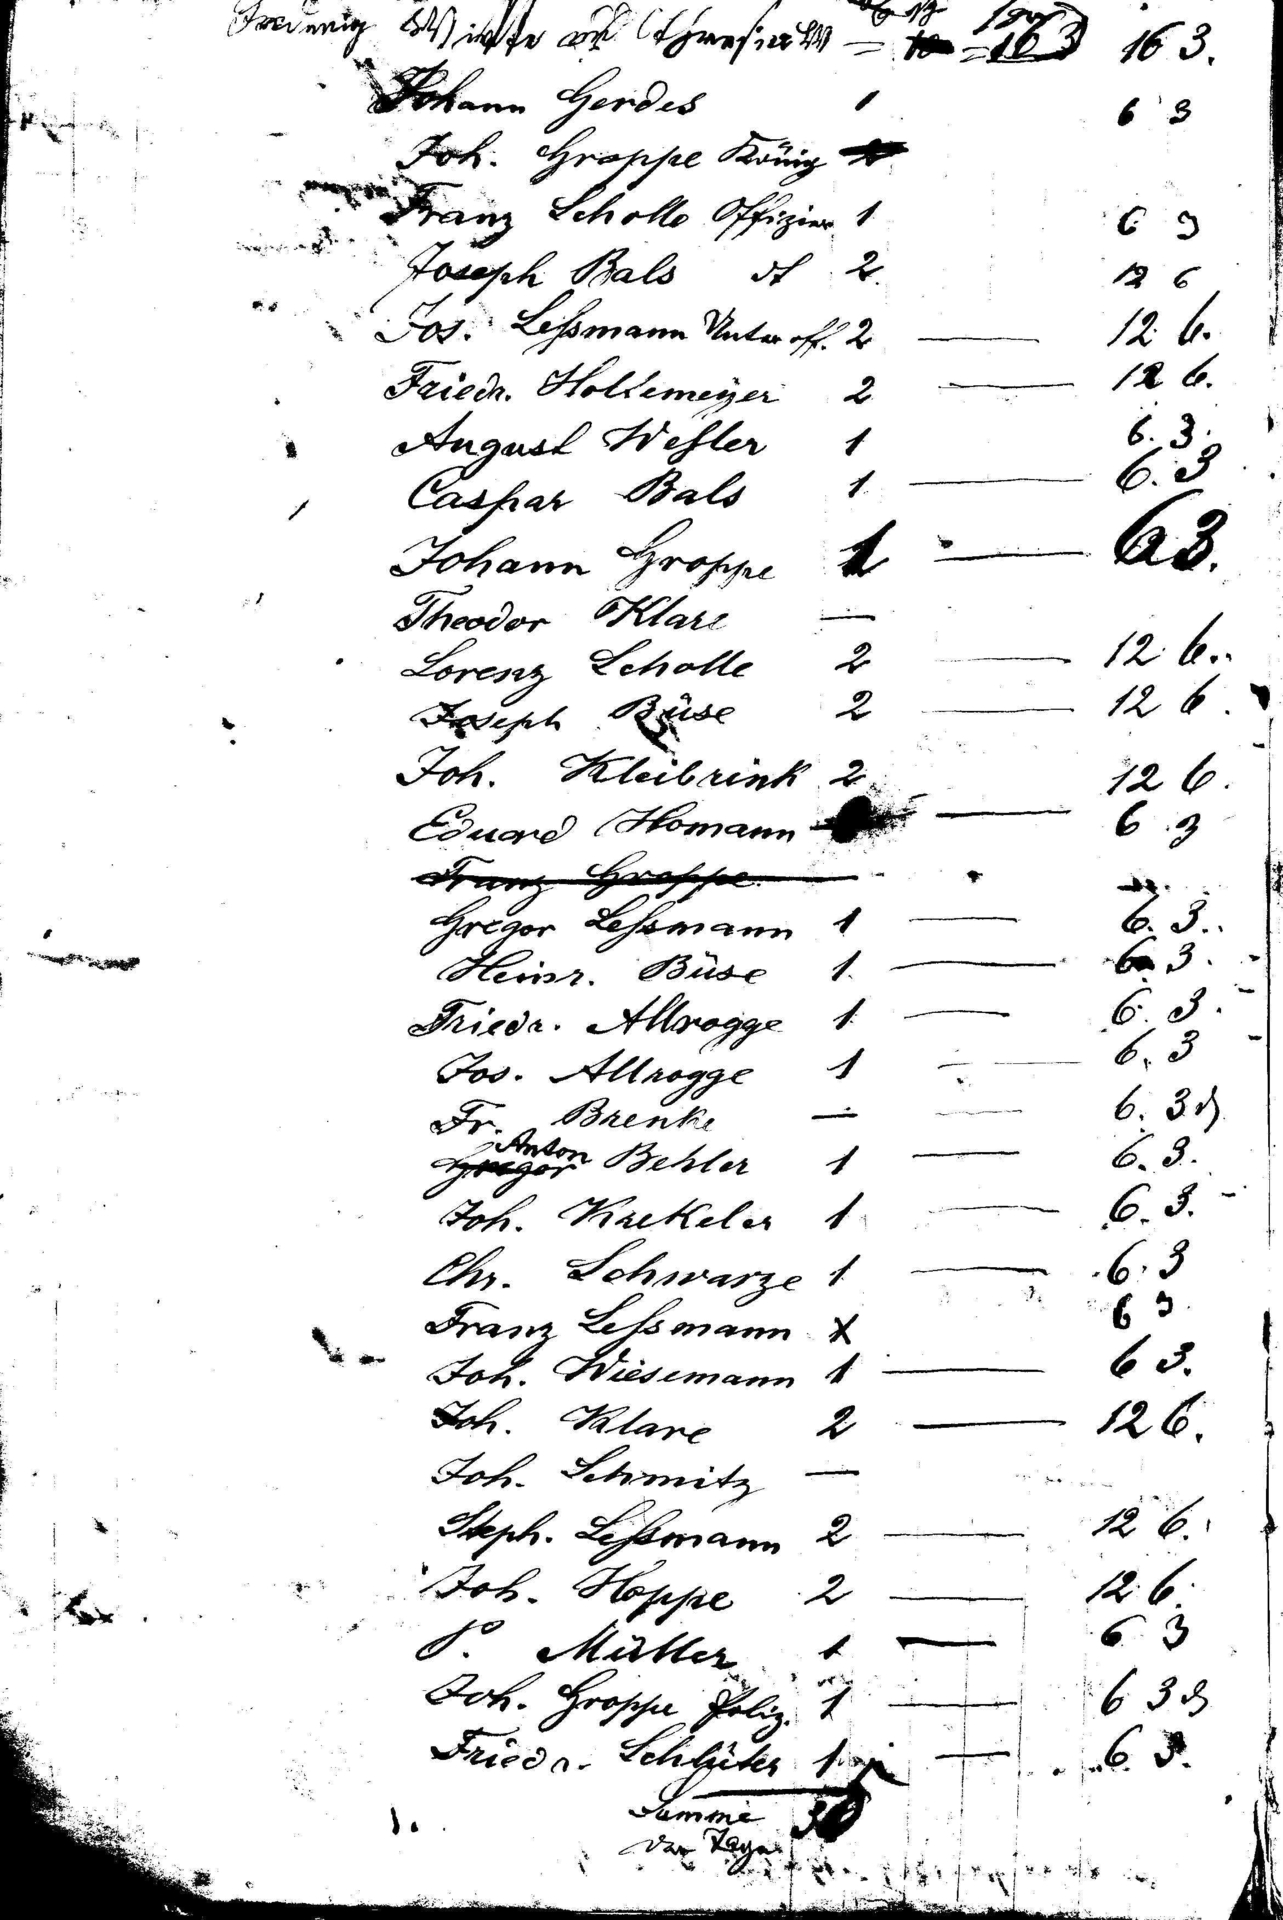 163 163.
Johann Gerdes 1 6 3
Joh. Groppe König
Franz Scholle Offizier 1 6 3
Joseph Bals 2. 12 6
Jos. Leſsmann Unteroff. 2 — 12 6.
Friedr. Holtemeyer 2 — 12 6.
August Weſler 1 6. 3.
Caspar Bals 1 — 6. 3
Johann Groppe 1 — 6 3.
Theodor Klare —
Lorenz Scholle 2 — 12 6.
Joseph Büse 2 — 12 6.
Joh. Kleibrink 2 12 6.
Eduard Homann — 6 3
Franz Groppe
Gregor Leſsmann 1 — 6. 3.
Heinr. Büse 1. — 6. 3.
Friedr. Allrogge 1. — 6. 3.
Jos. Allrogge 1 — 6. 3
Fr. Brenke — — 6. 3
Anton
Gregor Behler 1 — 6. 3.
Joh. Krekeler 1 — 6. 3.
Chr. Schwarze 1. — 6. 3
Franz Leſsmann x 6 3
Joh. Wiesemann 1 — 6 3.
Joh. Klare 2 — 12 6.
Joh. Schmitz —
Steph. Leſsmann 2 — 12 6.
Joh. Hoppe 2 — 12 6.
Müller 1 — 6 3
Joh. Groppe Poliz. 1 — 6 3
Friedr. Schlüter 1 — 6 3.
Summe
der Tage